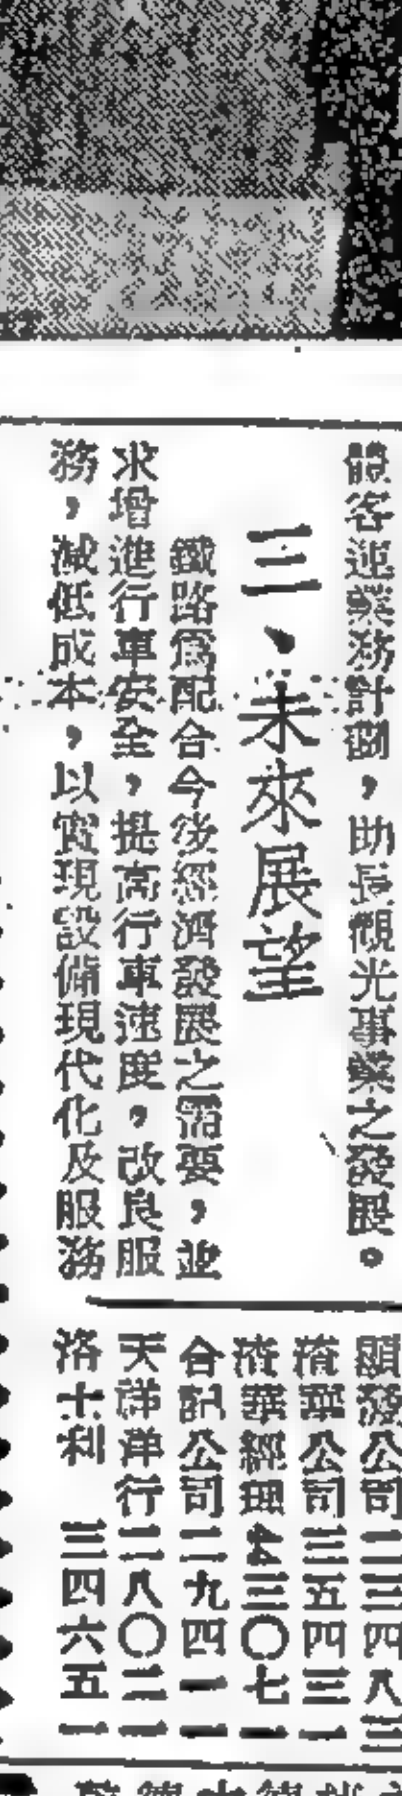 體客運業務計劃，助長觀光事業之發展。
三、未來展望
鐵路爲配合今後經濟發展之需要，並
求增進行車安全，提高行車速度，改良服
務，減低成本，以實現設備現代化及服務
顯發公司二三四八三
公司三五四三一
華經理 三〇七一
合記公司二九四一一
天祥洋行二八〇二一
洛士利 三四六五一